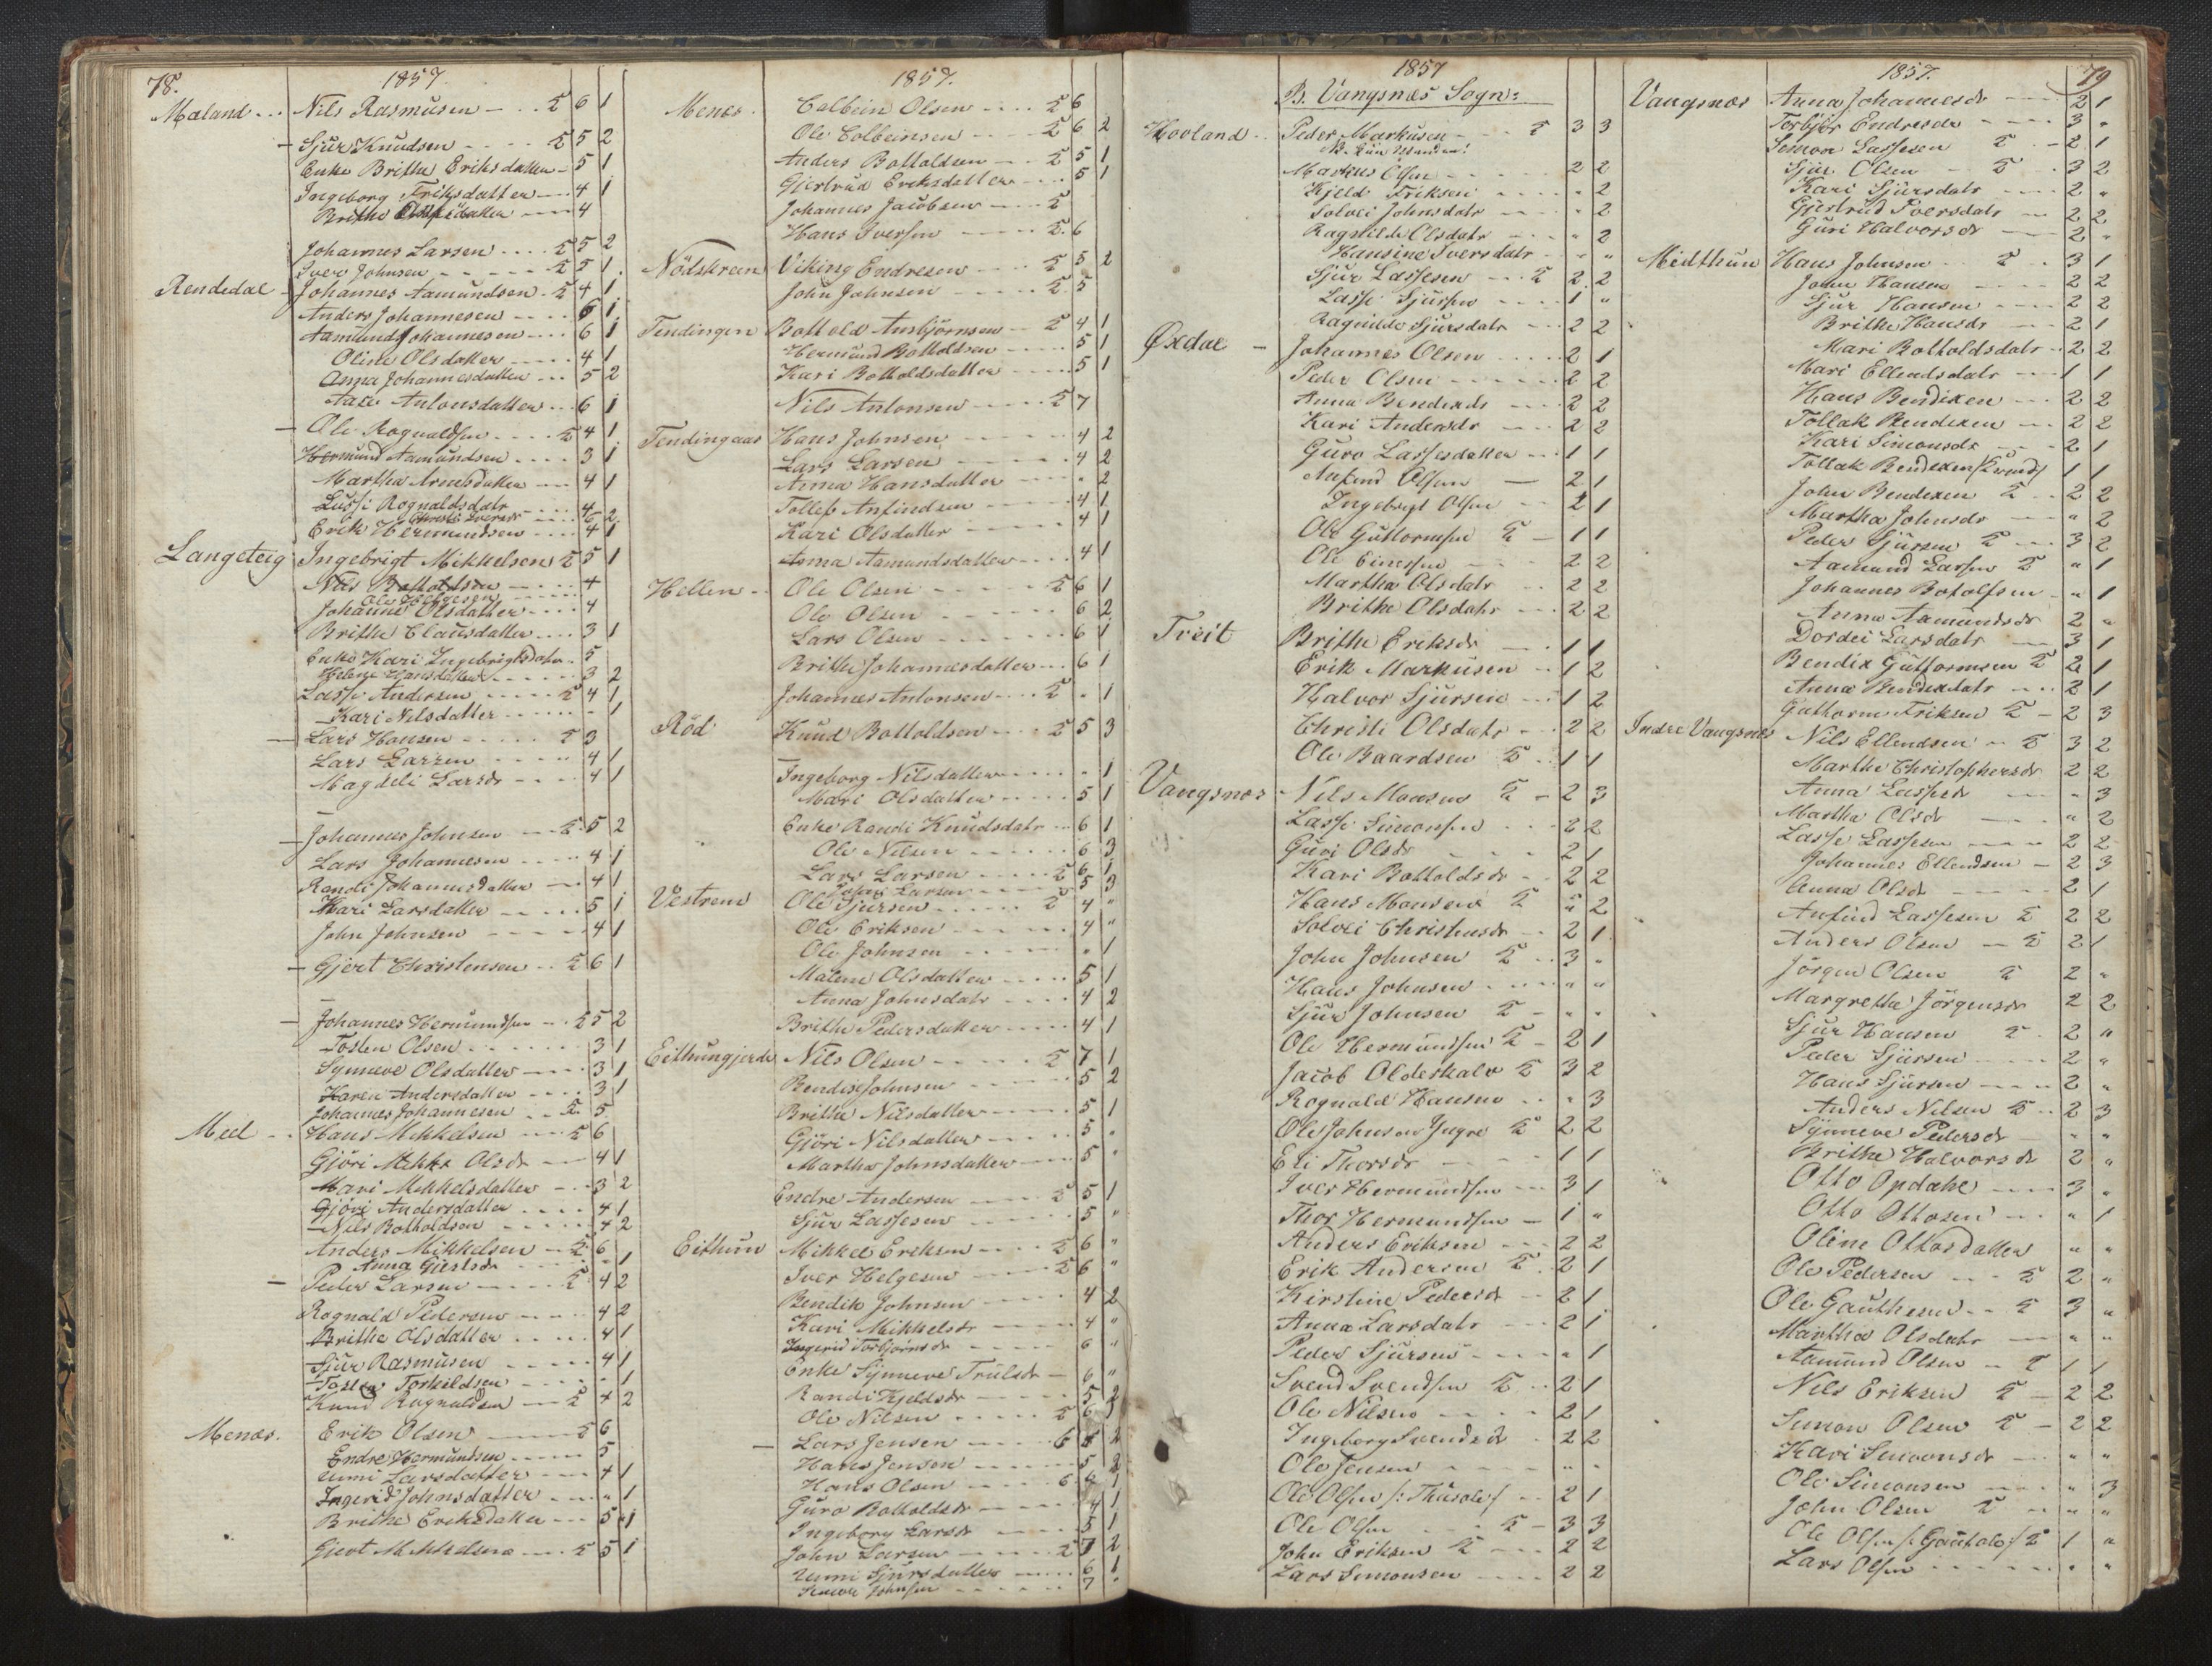 78.
1857
Mæland ... Nils Rasmusen - .. 6 1
Sjur Knudsen 5 2
Enke Brithe Eriksdatter 5 1
Ingeborg Eriksdatter 4 1
Brithe 4
Johannes Larsen 5 2
Iver Johnsen 5 1
Rendedal Johannes Aamundsen 4 1
Anders Johannesen 6 1
Aamund Johannesen 6 1
Oline Olsdatter 4 1
Anna Johannesdatter 5 2
Antonsdatter 6 1
Ole Rognaldsen 4 1
Hermund Aamundsen 3 1
Martha Arnesdatter 4 1
Rognaldsdatr 4
Iversdr 6 2
Erik Hermundsen 4 1
Langeteig Ingebrigt Mikkelsen 5 1
Nils Botholdsen 4
Ole Helgesen
Johanne Olsdatter 4
Brithe Clausdatter 3 1
Enke Kari Ingebrigtsdatr 5
Helene Hansdatter 3 2
Lasse Andersen 4 1
Kari Nilsdatter - 1
Lars Hansen 3
Lars Larsen 4 1
Magdeli Larsdr 4 1
Johannes Johnsen 5 2
Lars Johannesen 4 1
Randi Johannesdatter 4 1
Kari Larsdatter 5 1
John Johnsen 4 1
Gjert Christensen 6 1
Johannes Hermundsen 5 2
Tosten Olsen 3 1
Synneve Olsdatter 3 1
Karen Andersdatter 3 1
Johannes Johannesen 5
Meel Hans Mikkelsen 6
Gjöri Olsdr 4 1
Mari Mikkelsdatter 3 2
Gjöri Andersdatter 4 1
Nils Botholdsen 4 2
Anders Mikkelsen 6
Anna Gjertsdr - 1
Peder Larsen 4 2
Rognald Pedersen 4 2
Brithe Olsdatter 4 1
Sjur Rasmusen 4 1
Tosten Torkildsen - 1
Knud Rognaldsen 4 2
Menæs. Erik Olsen 6
Endre Hermundsen 5
Unni Larsdatter 4 1
Ingerid Johnsdatter " 1
Brithe Eriksdatter 5 1
Gjert Mikkelsen 5 1
1857.
Menæs. Colbein Olsen 6
Ole Colbeinsen 6 2
Anders Botholdsen 5 1
Gjertrud Eriksdatter 5 1
Johannes Jacobsen
Hans Iversen 6
Nödskrein Viking Endresen 5 2
John Johnsen 5
Tendingen Bottold Ansbjörnsen 4 1
Hermund Botholdsen 5 1
Kari Botholdsdatter 5 1
Nils Antonsen 7
Tendingaas Hans Johnsen 4 2
Lars Larsen 4 2
Anna Hansdatter " 2
Tollef Anfindsen 4 1
Kari Olsdatter 4 1
Anna Aamundsdatter 4 1
Hellen Ole Olsen 6 1
Ole Olsen 6 2
Lars Olsen 6 1
Brithe Johannesdatter 6 1
Johannes Antonsen " 1
Röd Knud Botholdsen 5 3
Ingeborg Nilsdatter " 1
Mari Olsdatter 5 1
Enke Randi Knudsdatr 6 1
Ole Nilsen 6 3
Lars Larsen 6 1
Larsen 5 3
Vestrem Ole Sjursen 4 "
Ole Eriksen 4 "
Ole Johnsen " 1
Malene Olsdatter 5 1
Anna Johnsdatr 4 2
Brithe Pedersdatter 4 1
Eithungjerde Nils Olsen 7 1
Bendix Johnsen 5 2
Brithe Nilsdatter 5 1
Gjöri Nilsdatter 5 "
Martha Johnsdatter 5 "
Endre Andersen 5 1
Sjur Lassesen 5 "
Eithun Mikkel Eriksen 6 "
Iver Helgesen 6 "
Bendik Johnsen 4 2
Kari Mikkelsdr 4 "
Ingerid Torbjörnsdr 6 "
Enke Synneve Trulsdr 6 "
Randi Kjeldsdr 5 2
Ole Nilsen 6 1
Lars Jensen 6 2
Hans Jensen 5 2
Hans Olsen 6 1
Guro Botholdsdr 4 1
Ingeborg Larsdr 5 1
John Larsen 7 2
Unni Sjursdatter 6 1
Johnsen 7
1857
B. Vangsnæs Sogn:
Hovland Peder Markusen 3 3
Markus Olsen 2 2
Kjeld Eriksen " 2
Solvei Johnsdatr " 2
Ragnilde Olsdatr " 2
Hansine Iversdatr " "
Sjur Lassesen 2 2
Lasse Sjursen 1 "
Ragnilde Sjursdatr 2 2
Øxdal Johannes Olsen 2 1
Peder Olsen 2 2
Anna Bendixdr 2 2
Kari Andersdr 2 2
Guro Lassesdatter 1 1
Anfind Olsen 2 1
Ingebrgt Olsen 2 1
Ole Guttormsen 1 1
Ole Einersen 2 2
Martha Olsdatr 2 2
Brithe Olsdatr 2 2
Tveit Brithe Eriksdr 1 1
Erik Markusen 1 2
Halvor Sjursen 1 2
Christi Olsdatr 2 2
Ole Baardsen 1 1
Vangsnæs Nils Monsen 2 3
Lasse Simonsen 2 2
Guri Olsdr 2 1
Kari Botholdsdr 2 2
Hans Monsen " 2
Solvei Christensdr 2 1
John Johnsen 3 "
Hans Johnsen " "
Sjur Johnsen " "
Ole Hermundsen 2 1
Jacob Olderskalv 3 2
Rognald Hansen " 3
Ole Johnsen Yngre 2 2
Eli Thorsdr 1 1
Iver Hermundsen 3 1
Thor Hermundsen 1 "
Anders Eriksen 2 2
Erik Andersen 2 1
Kirstine Pedersdr 2 1
Anna Larsdatr 2 1
Peder Sjursen " 1
Svend Svendsen 2 1
Ole Nilsen 2 1
Ingeborg Svendsdr 2 2
Ole Jensen " "
Ole Olsen 2 1
Ole Olsen 3 3
John Eriksen 2 2
Lars Simonsen 2 2
1857.
79
Vangsnæs Anna Johannesdr 2 1
Torbjör Endresdr 3 "
Simon Lassesen 2 1
Sjur Olsen 3 2
Kari Sjursdatr 2 "
Gjertrud Iversdatr 2 2
Guri Halvorsdr 2 "
Midthun Hans Johnsen 3 1
John Hansen 2 2
Sjur Hansen 2 2
Brithe Hansdr 2 1
Mari Botholdsdatr 2 2
Mari Ellendsdatr 1 1
Hans Bendixen 2 2
Tollak Bendixen 2 2
Kari Simonsdr 2 1
Tollak Bendixen 1 1
John Bendixen 2 2
Martha Johnsdr " 2
Peder Sjursen 3 2
Aamund Larsen " 1
Johannes Botolfsen " 1
Anna Aamundsdr 2 "
Dordei Larsdatr 3 1
Bendix Guttormsen 2 1
Anna Bendixdatr 2 1
Guthorm Eriksen 2 3
Indre Vangsnæs Nils Ellendsen 3 2
Marthe Christophersdr 2 2
Anna Lassesdr " 3
Martha Olsdr " 2
Lasse Lassesen 2 2
Johannes Ellendsen 2 3
Anna Olsdr 2 1
Anfind Lassesen 2 2
Anders Olsen 2 1
Jörgen Olsen 2 "
Margrethe Jörgensdr 2 2
Sjur Hansen 2 "
Peder Sjursen 2 "
Hans Sjursen 2 "
Anders Nilsen 2 3
Synneve Pedersdr " "
Brithe Halvorsdr 2 "
Otto Opdahl 3 "
Otto Ottosen " 1
Oline Ottosdatter " "
Ole Pedersen 2 "
Ole Gauthesen 3 "
Martha Olsdatr " "
Aamund Olsen 1 1
Nils Eriksen 2 2
Simon Olsen 2 2
Kari Simonsdr " "
Ole Simonsen " 3
John Olsen " "
Ole Olsen 1 "
Lars Olsen " "